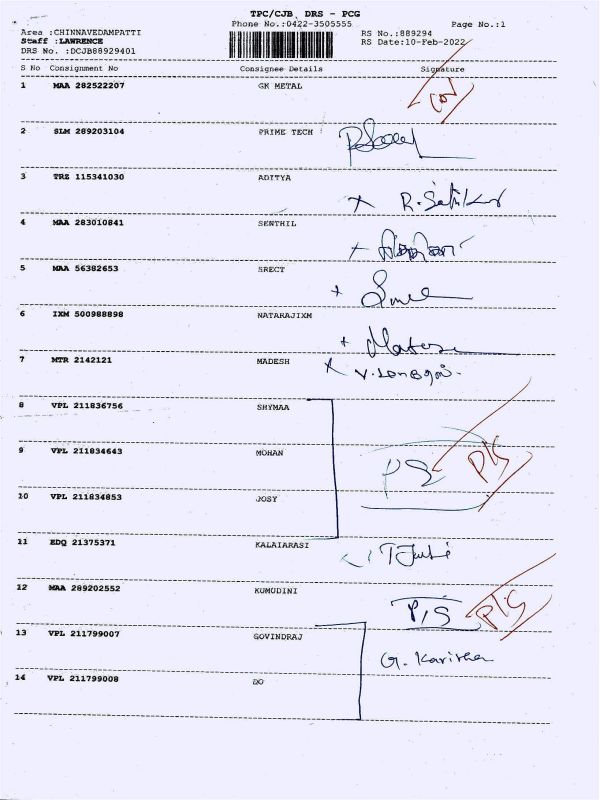 TPC/CJB DRS - PCG
Phone No.:0422-3505555 Page No.:1
Area :CHINNAVEDAMPATTI RS No.:889294
Staff :LAWRENCE RS Date:10-Feb-2022
DRS No. :DCJB88929401
S No Consignment No Consignee Details Signature
1 MAA 282522207 GK METAL
2 SLM 289203104 PRIME TECH
3 TRZ 115341030 ADITYA
R. Satikur
4 MAA 283010841 SENTHIL
5 MAA 56382653 SRECT
6 IXM 500988898 NATARAJIXM
7 MTR 2142121 MADESH
8 VPL 211836756 SHYMAA
9 VPL 211834643 MOHAN
P/S
10 VPL 211834853 JOSY
11 EDQ 21375371 KALAIARASI
12 MAA 289202552 KUMUDINI
P/S P/S
13 VPL 211799007 GOVINDRAJ
G. Karisha
14 VPL 211799008 DO